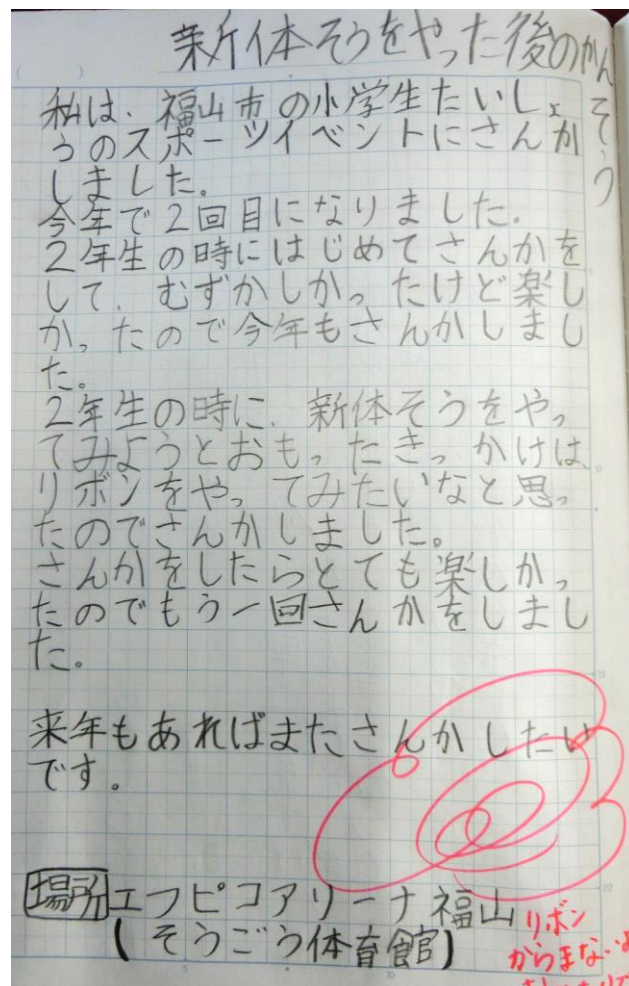 新体そうをやった後のかんそう
私は、福山市の小学生たいしょ
うのスポーツイベントにさんか
しました。
今年で2回目になりました。
2年生の時にはじめてさんかを
して、むずかしかったけど楽し
かったので今年もさんかしまし
た。
2年生の時に、新体そうをやっ
てみようとおもったきっかけは、
リボンをやってみたいなと思っ
たのでさんかしました。
さんかをしたらとても楽しかっ
たのでもう一回さんかをしまし
た。
来年もあればまたさんかしたい
です。
場所 エフピコアリーナ福山
(そうごう体育館)
リボン
からまないよ